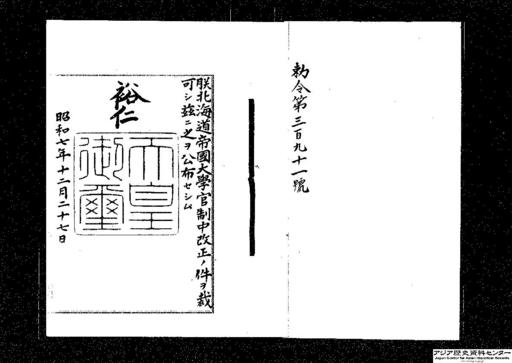 勅令第三百九十一號
朕北海道帝國大學官制中改正ノ件ヲ裁
可シ茲ニ之ヲ公布セシム
裕仁
天皇
御璽
昭和七年十二月二十七日
アジア歴史資料センター
Japan Center for Asian Historical Records